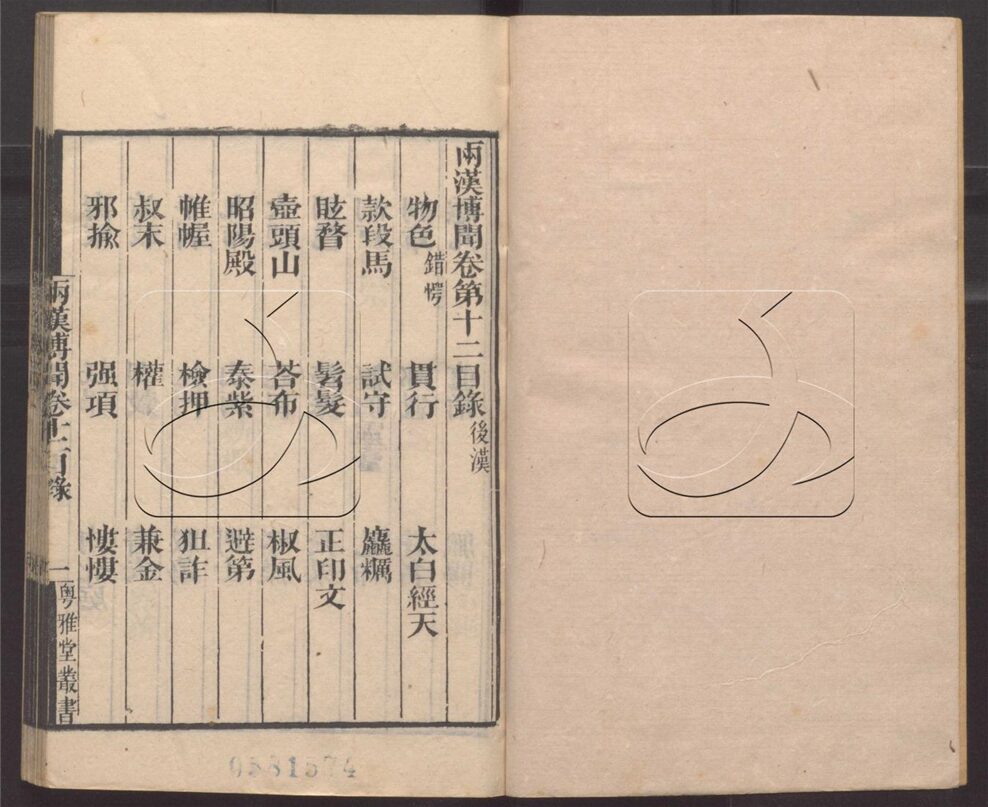 兩漢博聞卷第十二目錄 後漢
物色 錯愕 貫行 太白經天
款段馬 試守 麤糲
眩瞀 髡髮 正印文
壺頭山 荅布 椒風
昭陽殿 泰紫 避第
帷幄 檢押 狙詐
叔末 權 兼金
邪揄 强項 慺慺
兩漢博聞卷十二目錄 一 粤雅堂叢書
0881574